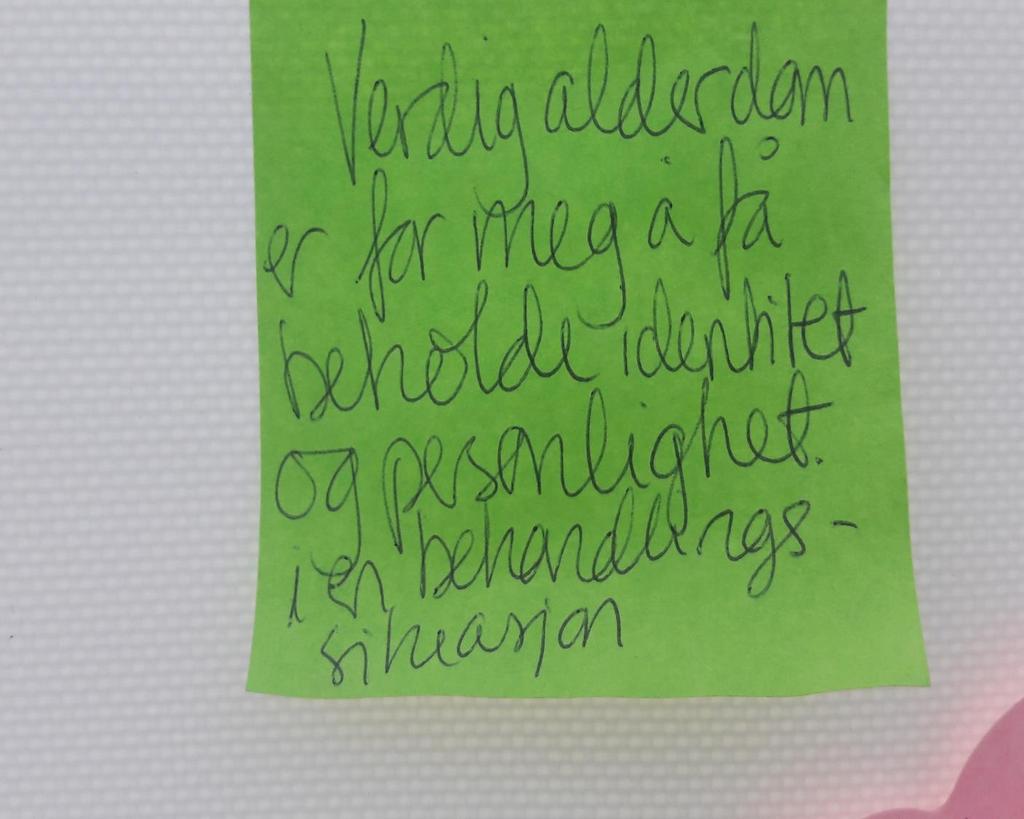 Verdig alderdom
er for meg å få
beholde identitet
og personlighet.
i en behandlings-
situasjon